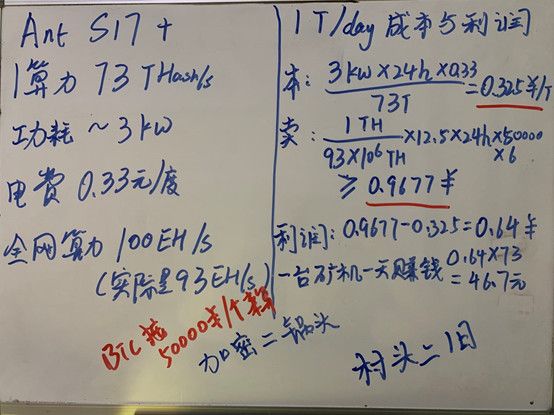 Ant S17+
算力 73 THash/s
功耗 ~3kw
电费 0.33元/度
全网算力 100EH/s
(实际是93EH/s)
BTC 按
50000¥/个算
加密二锅头
1T/day 成本与利润
本: 3kw×24h×0.33 / 73T = 0.325¥/T
卖: 1TH / 93×10⁶TH ×12.5×24h×50000
×6
≥ 0.9677¥
利润: 0.9677-0.325=0.64¥
一台矿机一天赚钱 0.64×73
=46.7元
村头二旧